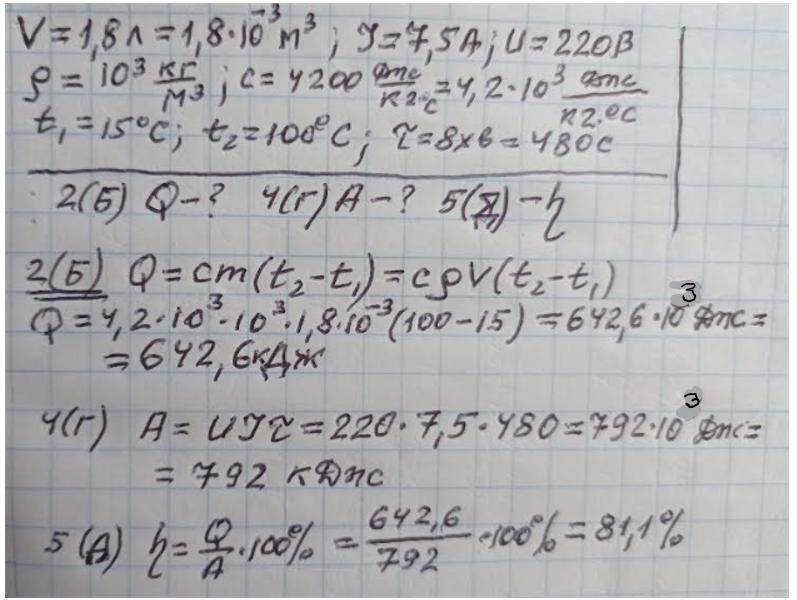 V=1,8л=1,8·10⁻³м³; I=7,5А; U=220В
ρ=10³ кг/м³; c=4200 Дж/кг·°C=4,2·10³ Дж/кг·°C
t₁=15°C; t₂=100°C; τ=8хв=480с
2(Б) Q-? 4(г) A-? 5(Д)-η
2(Б) Q=cm(t₂-t₁)=cρV(t₂-t₁)
Q=4,2·10³·10³·1,8·10⁻³(100-15)=642,6·10³ Дж=
=642,6кДж
4(г) A=UIτ=220·7,5·480=792·10³ Дж=
=792 кДж
5(Д) η=Q/A·100%=642,6/792·100%=81,1%